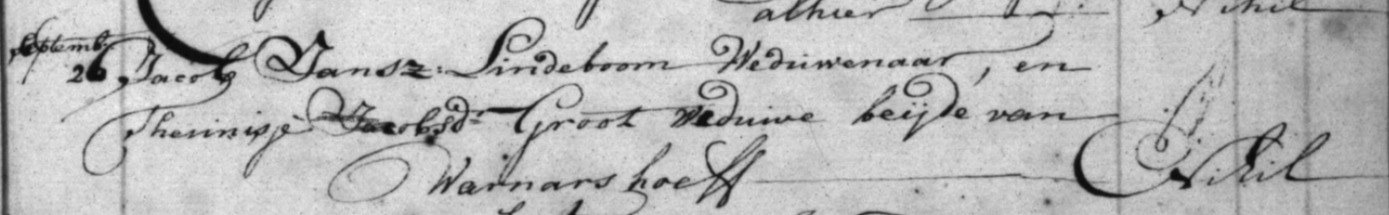 alhier Nihil
Septemb:
26 Jacob Jansz: Lindeboom Weduwenaar, en
Theunisje Jacobsd: Groot Weduwe beijde van
Warnarshoeff Nihil